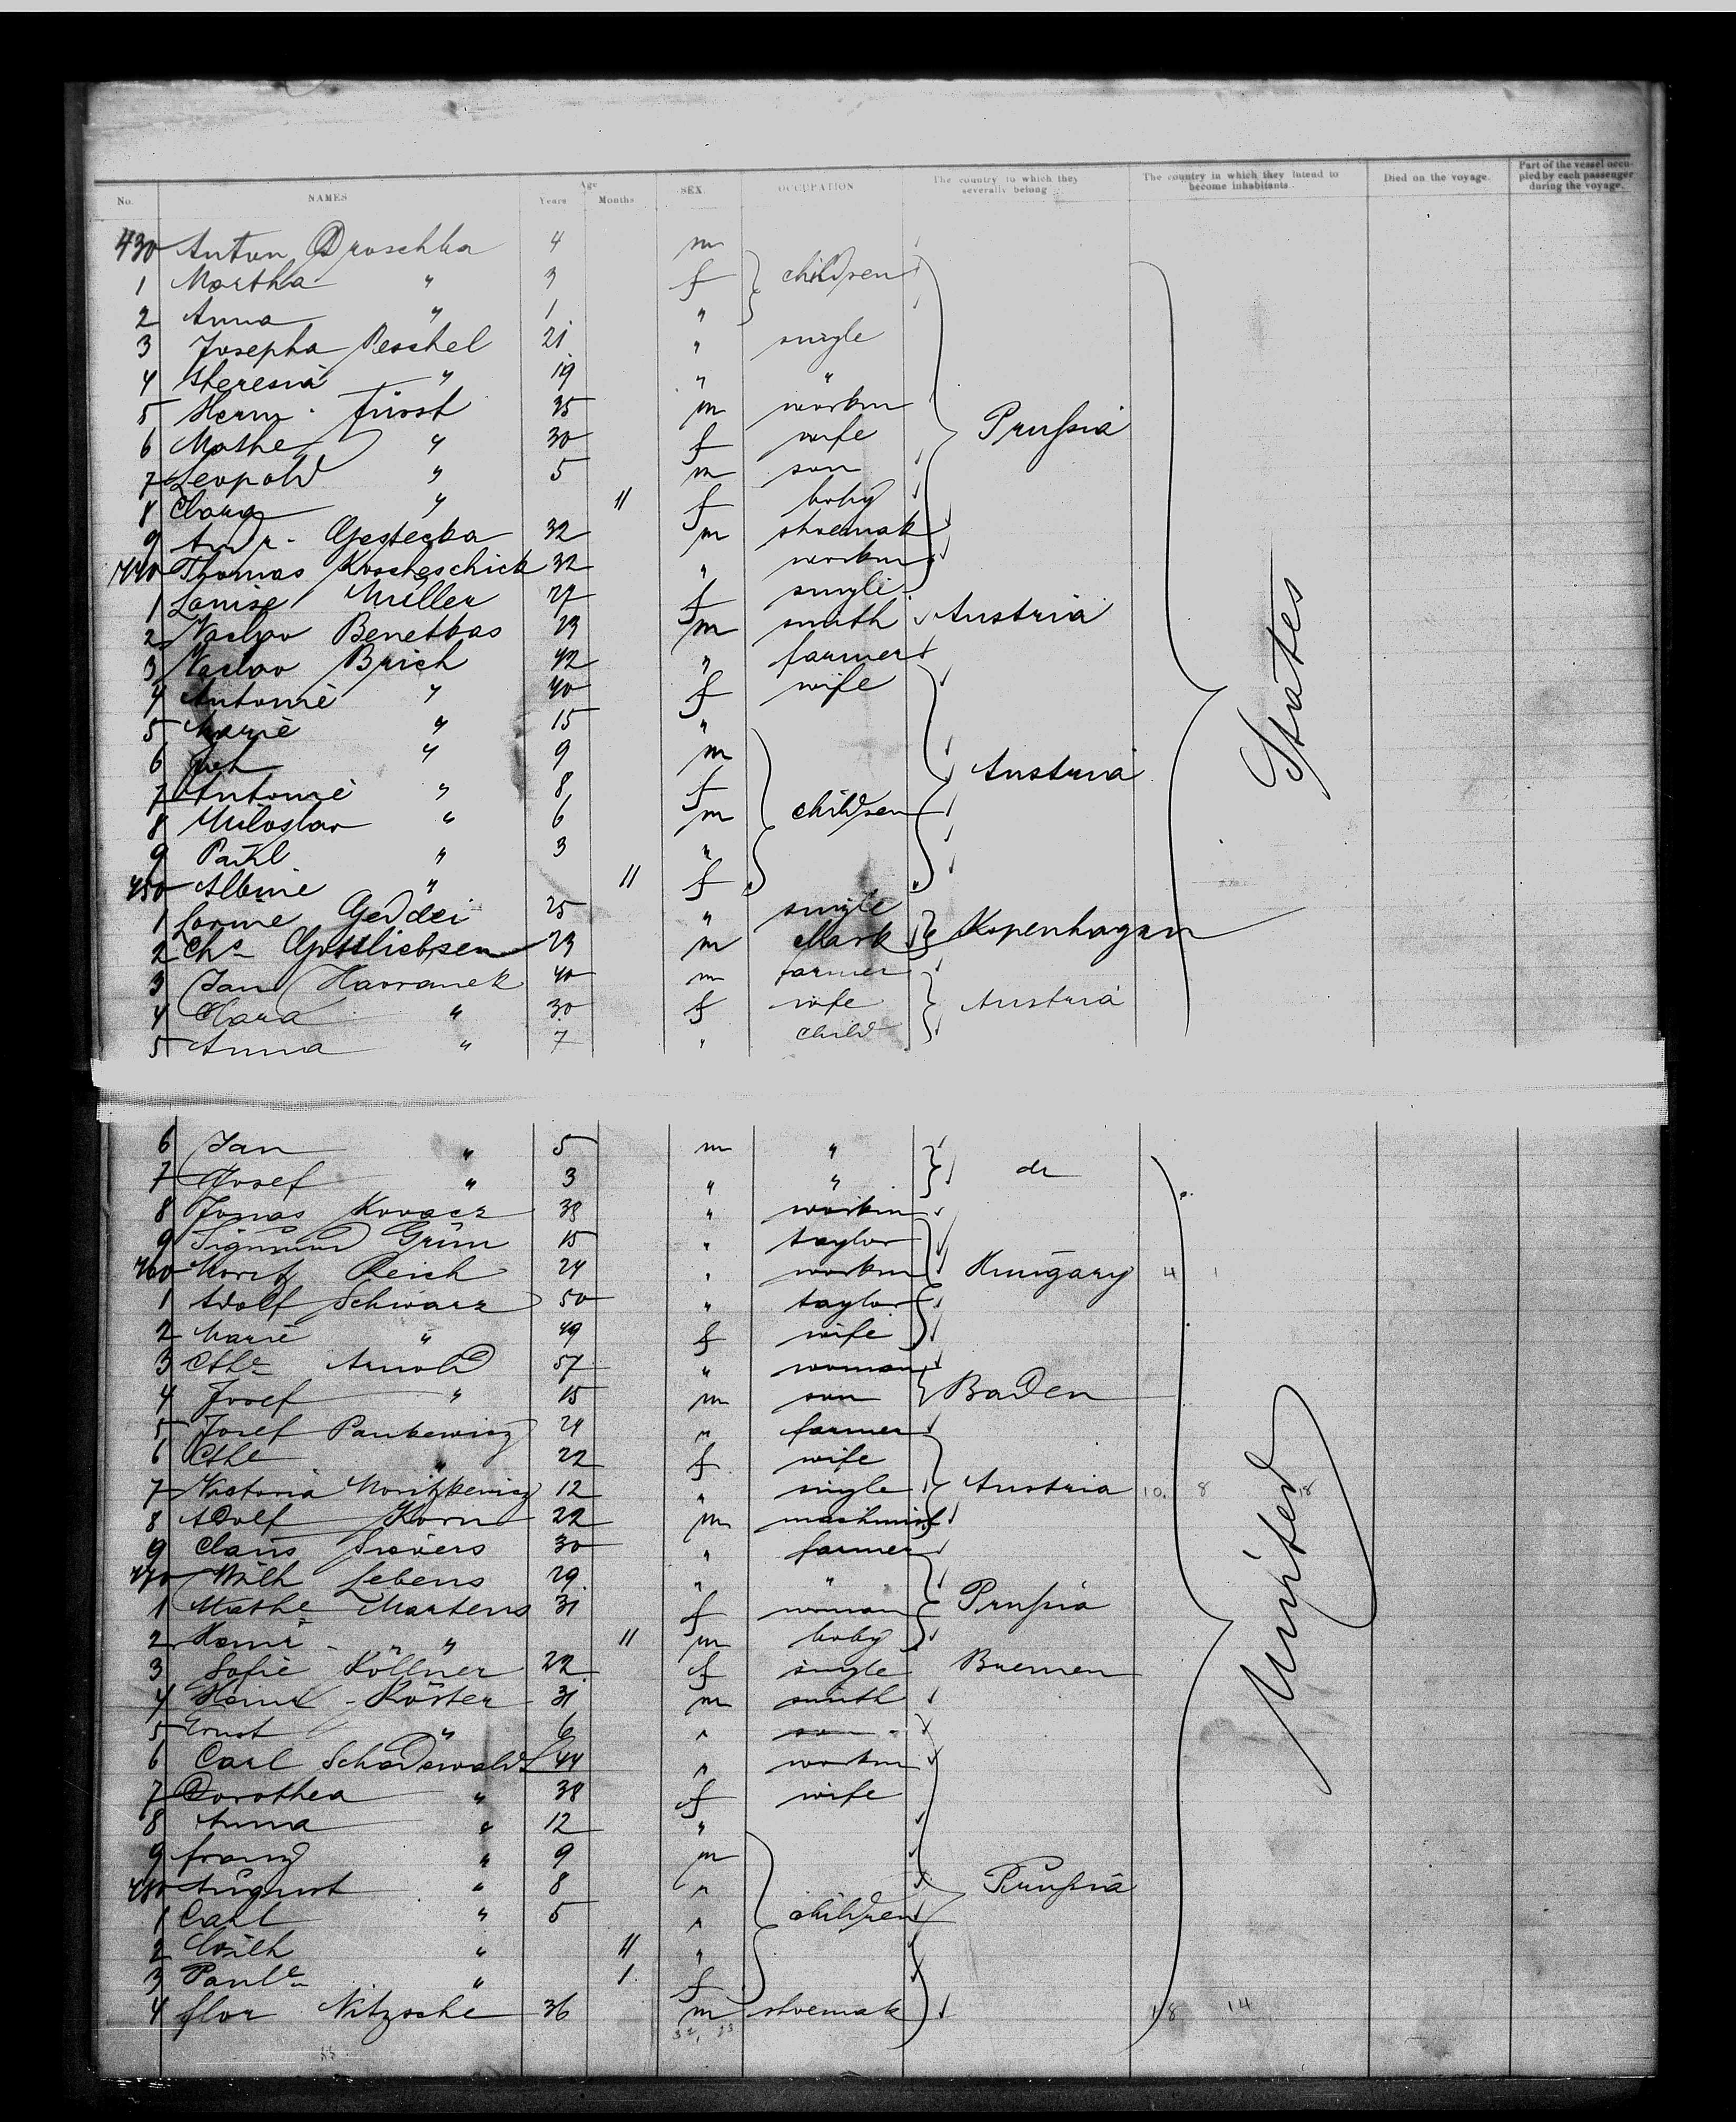 No. NAMES Age Years Months SEX. OCCUPATION The country to which they severally belong The country in which they intend to become inhabitants. Died on the voyage. Part of the vessel occupied by each passenger during the voyage.
430 Anton Droschka 4 m
1 Martha " 3 f children
2 Anna " 1 "
3 Josepha Peschel 21 " single
4 Theresia " 19 " "
5 Herm. Fürst 35 m workm
6 Mathe " 30 f wife Prussia
7 Leopold " 5 m son
8 Clara " 11 f baby
9 Andr. 32 m shoemak
440 Thomas Koscheschick 32 " workm
1 Louise Müller 27 f single
2 Vaclav Benetkas 23 m smith Austria
3 Vaclav Brich 42 " farmer
4 Antonie " 40 f wife
5 Marie " 15 "
6 " 9 m
7 Antonie " 8 f Austria
8 Miloslav " 6 m children
9 " 3 "
450 Albine " 11 f
1 25 " single
2 Chs Gottliebsen 23 m Klark Kopenhagen
3 Jan Havranek 40 m farmer
4 Clara " 30 f wife Austria
5 Anna " 7 " child
States
6 Jan " 5 m "
7 Josef " 3 " " do
8 Jonas Kovacz 38 " workm
9 Sigmund Grün 15 " taylor
460 Moritz Reich 24 " workm Hungary 4 1
1 Adolf Schwarz 50 " taylor
2 Marie " 49 f wife
3 Cthe Arnold 57 " woman
4 Josef " 15 m son Baden
5 Josef Pankewicz 24 " farmer
6 Cthe " 22 f wife
7 Victoria Moritzkewicz 12 " single Austria 10. 8 18
8 Adolf Korn 22 m mashinist
9 Claus Sievers 30 " farmer
470 Wilh Lebens 29 " "
1 Mathe Martens 31 f woman Prussia
2 " " 11 m baby
3 Sofie Köllner 22 f single Bremen
4 Heinr. Köster 31 m smith
5 Ernst " 6 " son
6 Carl Schadewald 44 " workm
7 Dorothea " 38 f wife
8 Anna " 12 "
9 Franz " 9 m
480 August " 8 " Prussia
1 Carl " 5 " children
2 Wilh " 11 "
3 Paule " 1 f
4 Flor Nitzsche 36 m shoemak 18 14
United